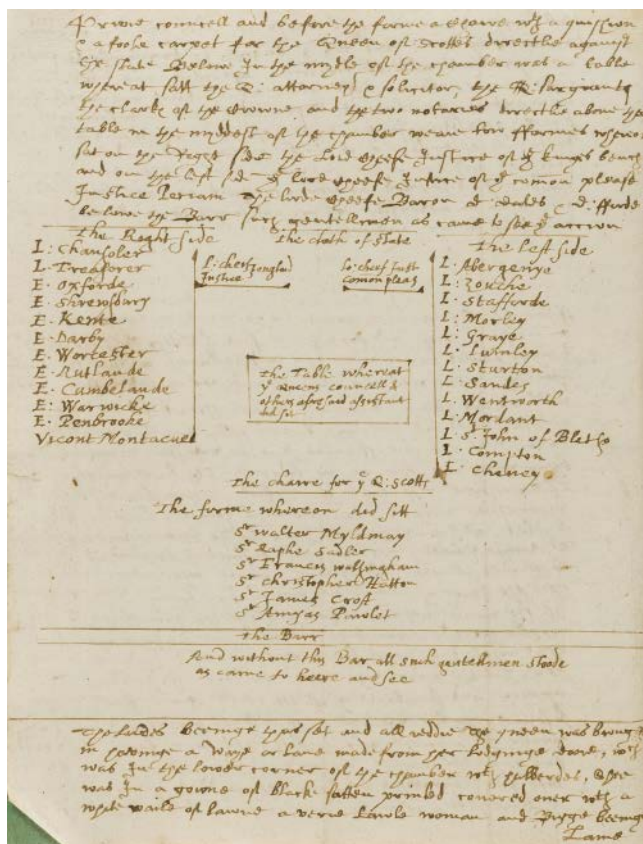 Privie councell and before the forme a chaire wth a quission
& a foote carpet for the Queen of Scotts directlie against
the state Belowe In the mydle of the chamber was a table
whereat satt the Q: attorney & solicitor, the Q: sargeante
the clarke of the Crowne and the two notaries directlie above the
table in the myddest of the chamber weare two fformes whereon
sat on the Right side the Lord Cheefe Justice of ye kinges bench
and on the left side ye lord cheefe Justice of ye comon please
Justice Periam the lorde cheefe Baron d: dales & d: fforde
belowe the Barr such gentellmen as came to see ye accion
The Right side
The cloth of State
The left side
L: Chansoler
L: Treasorer
E: Oxforde
E: Shrewsbury
E: Kente
E: Darby
E: Worcester
E: Rutlande
E: Cumbelande
E: Warwicke
E: Penbrooke
Vicont Montacue
L: cheef england
Justice
Lo: cheef Just
comon pleas
L: Abergenye
L: Zouche
L: Stafforde
L: Morley
L: Graye
L: Lumley
L: Sturton
L: Sandes
L: Wentworth
L: Mordant
L: St John of Bletso
L: Compton
L: Cheney
the Table whereat
ye Queens councell &
others aforesaid assistant
did sit
The chaire for ye Q: Scotts
The forme whereon did sitt
Sr Walter Myldmay
Sr Raphe Sadler
Sr Francis walsingham
Sr Christopher Hatton
Sr James Croft
Sr Amyas Pawlet
The Barr
And without this Bar all such gentellmen stoode
as came to heere and see
The Lordes beeinge thus set and all reddie the queen was broug
in havinge a waye or Lane made from her lodginge dore, wch
was In the lower corner of the chamber wth halberdes, shee
was In a gowne of blacke satten printed covered over wth a
white vaile of lawne a verie Large woman and Bigge beeing
Lame